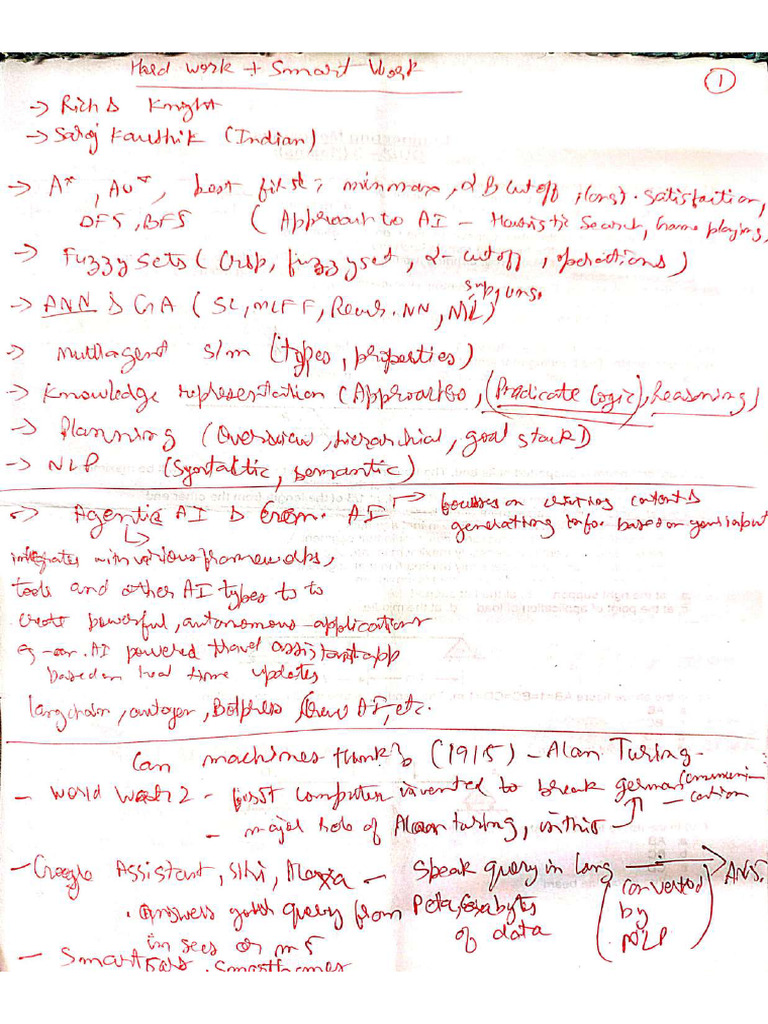 Hard work + Smart Work
①
→ Rich & Knight
→ Saroj Kaushik (Indian)
→ A*, AO*, best first, minmax, αβ cutoff, cons. satisfaction,
DFS, BFS (Approach to AI - Heuristic Search, Game playing,
→ Fuzzy sets (Crisp, fuzzy set, α-cutoff, operations)
sup, uns.
→ ANN & GA (SL, MLFF, Recur. NN, ML)
→ Multiagent s/m (types, properties)
→ Knowledge representation (Approaches, (Predicate logic), Reasoning)
→ Planning (Overview, hierarchial, goal stack)
→ NLP (Syntactic, semantic)
→ Agentic AI & Gen. AI → focusses on creating content &
generating info. based on your input
integrates with various frameworks,
tools and other AI types to to
create powerful, autonomous applications
eg - an AI powered travel assistant app
based on real time updates
langchain, autogen, Botpress, Crew AI, etc.
Can machines think? (1915) - Alan Turing
- World War 2 - first computer invented to break german communi-
cation
- major role of Alan turing, in this
- Google Assistant, Siri, Alexa - speak query in lang → ANS.
. Answers query from Peta, Exabytes
of data
(converted
by
NLP
in secs or ms
- Smart cars, Smart homes